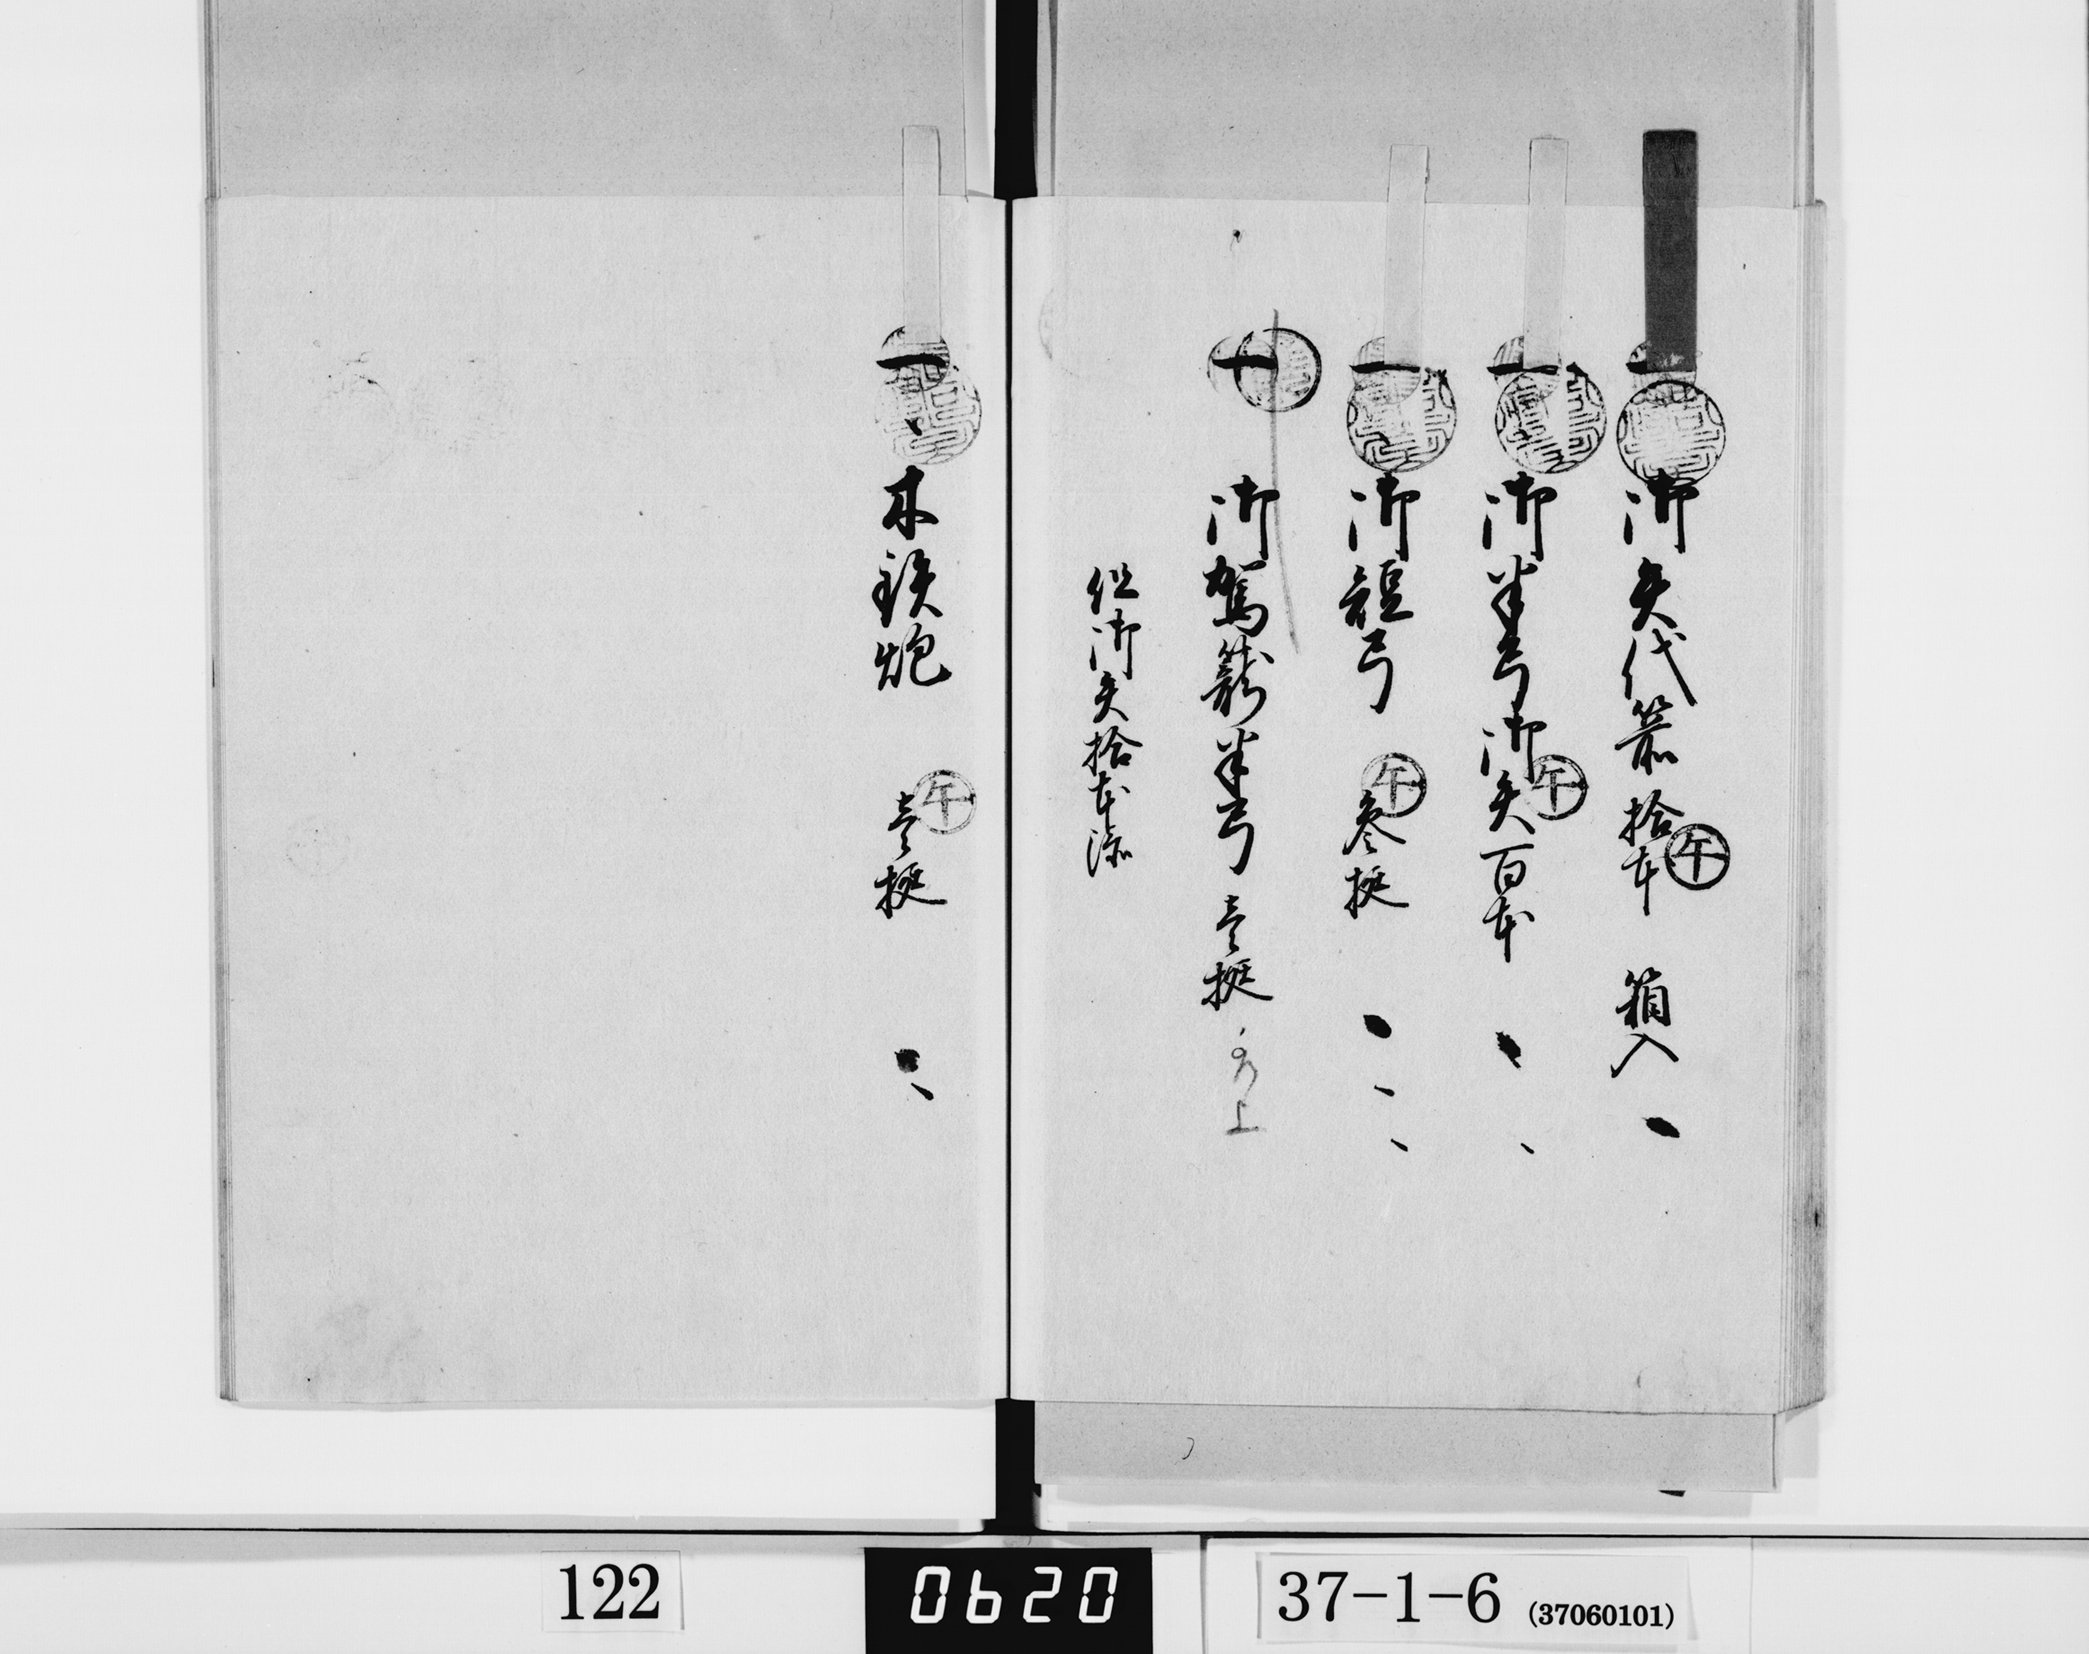 一 御矢代箱 拾本 箱入
午
一 御半弓御矢百本
午
一 御短弓 参挺
午
一 御駕籠半弓 壱挺
但御矢拾本添
一 木鉄炮 壱挺
午
122
0620
37-1-6 (37060101)